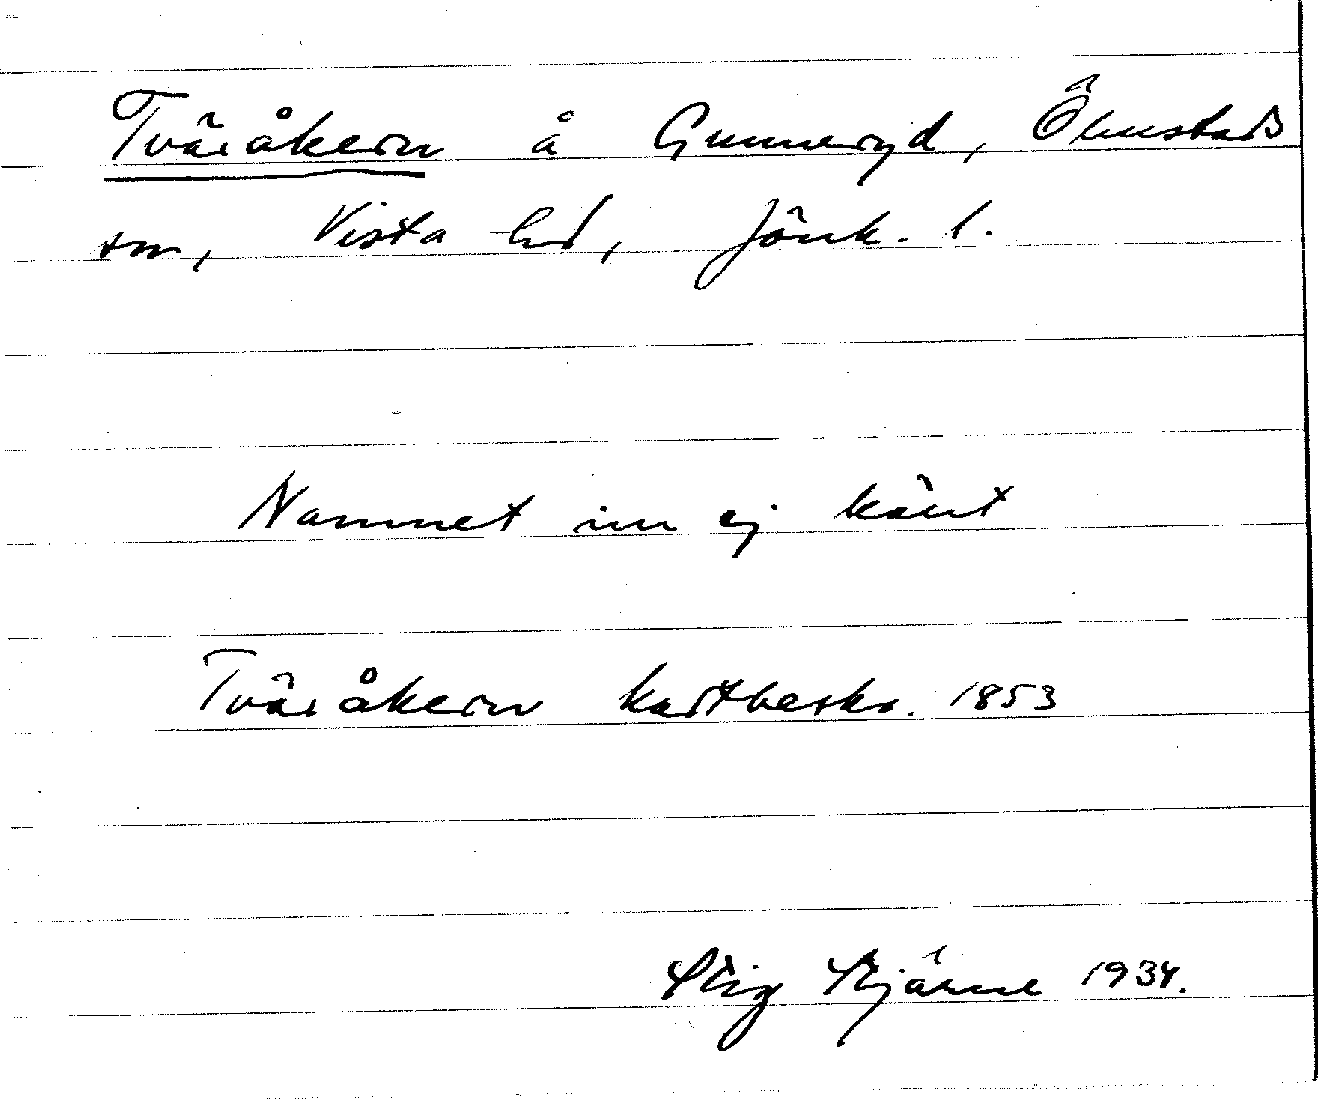 Tväråkern å Gunneryd, Ölmstads
sn, Vista hd, Jönk. l.
Namnet nu ej känt
Tväråkern kartbeskr. 1853
Stig Stjärne 1934.